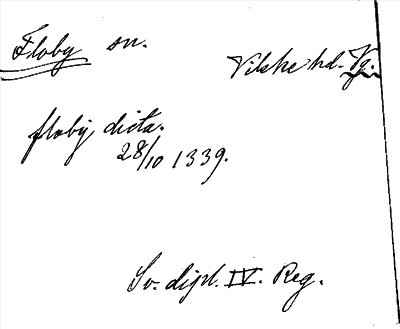 Floby sn.
Vilske hd. Vg.
floby dicta.
28/10 1339.
Sv. dipl. IV. Reg.